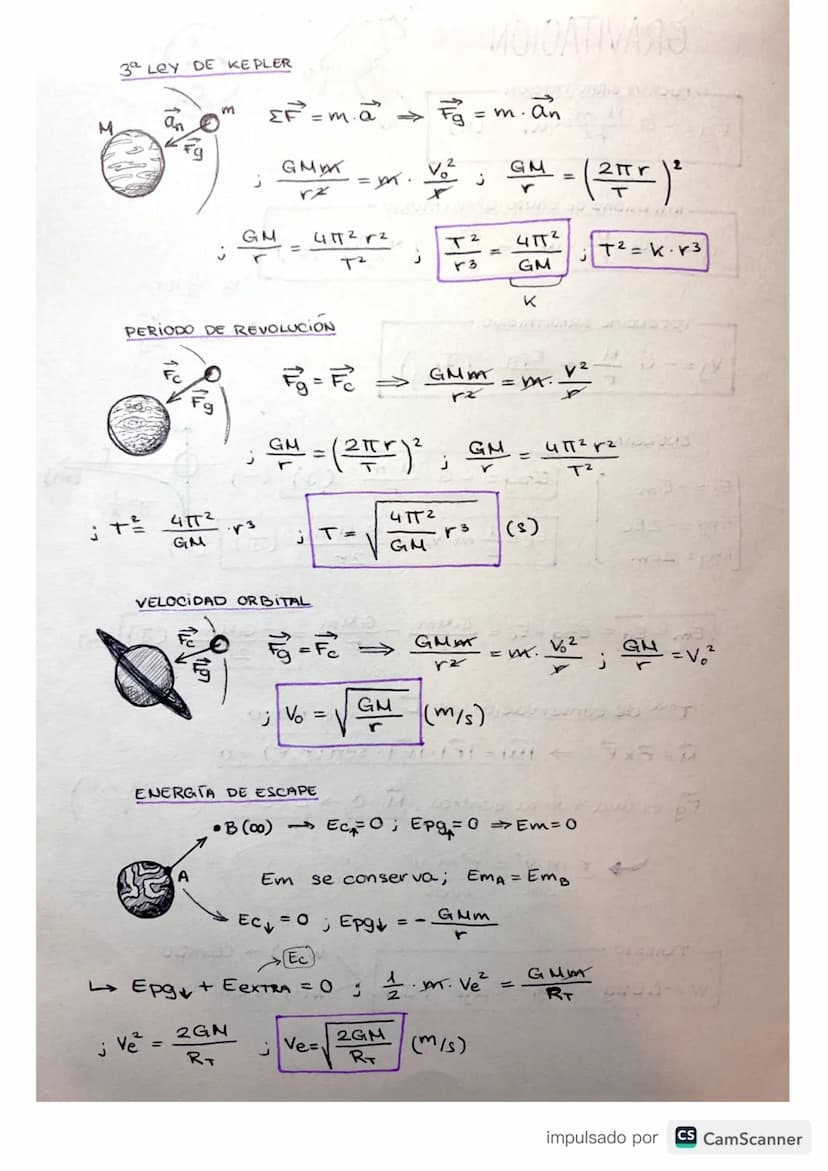 GRAVITACIÓN
3ª LEY DE KEPLER
M m a⃗n F⃗g ΣF⃗ = m·a⃗ ⇒ F⃗g = m·a⃗n
; GMm/r² = m·V₀²/r ; GM/r = (2πr/T)²
; GM/r = 4π²r²/T² ; T²/r³ = 4π²/GM ; T² = K·r³
K
PERÍODO DE REVOLUCIÓN
F⃗c F⃗g F⃗g = F⃗c ⇒ GMm/r² = m·V²/r
; GM/r = (2πr/T)² ; GM/r = 4π²r²/T²
; T² = 4π²/GM ·r³ ; T = √(4π²/GM r³) (s)
VELOCIDAD ORBITAL
F⃗c F⃗g F⃗g = F⃗c ⇒ GMm/r² = m·V₀²/r ; GM/r = V₀²
; V₀ = √(GM/r) (m/s)
ENERGÍA DE ESCAPE
•B (∞) → Ec↑=0 ; Epg↑=0 ⇒ Em=0
A Em se conserva; EmA = EmB
Ec↓ = 0 ; Epg↓ = - GMm/r
Ec
↳ Epg↓ + EEXTRA = 0 ; 1/2·m·Ve² = GMm/RT
; Ve² = 2GM/RT ; Ve=√(2GM/RT) (m/s)
impulsado por CS CamScanner